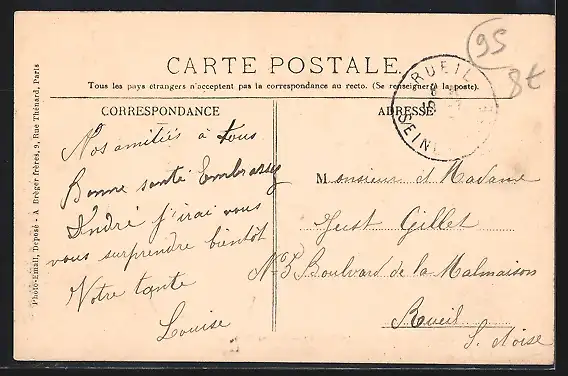 95
8€
CARTE POSTALE
Tous les pays étrangers n'acceptent pas la correspondance au recto. (Se renseigner à la poste).
CORRESPONDANCE
ADRESSE
RUEIL
SEINE
Photo-Email, Déposé - A Bréger frères, 9, Rue Thénard, Paris
Nos amitiés à tous
Bonne santé Embrassez
André j'irai vous
vous surprendre bientôt
Votre tante
Louise
Monsieur et Madame
Just Gillet
No 5 Boulvard de la Malmaison
Rueil
S. Oise